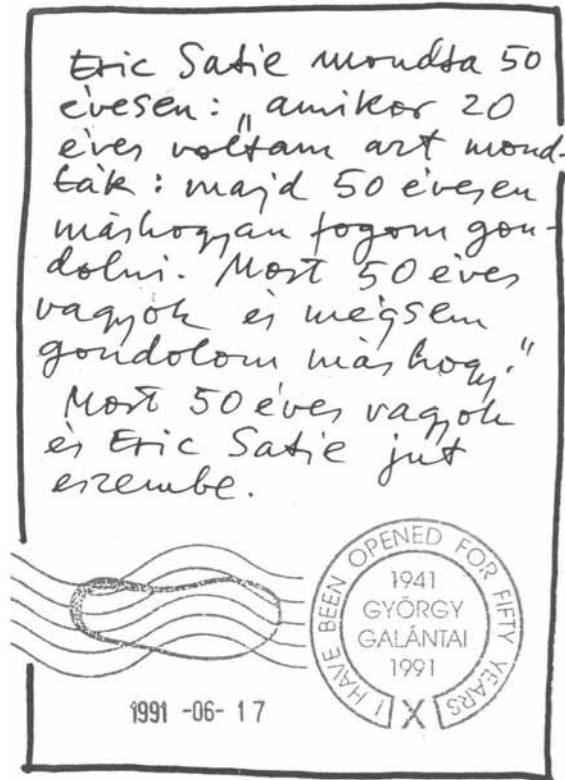 Eric Satie mondta 50
évesen: „amikor 20
éves voltam azt mond-
ták: majd 50 évesen
máshogyan fogom gon-
dolni. Most 50 éves
vagyok és mégsem
gondolom máshogy."
Most 50 éves vagyok
és Eric Satie jut
eszembe.
I HAVE BEEN OPENED FOR FIFTY YEARS
1941
GYÖRGY
GALÁNTAI
1991
X
1991 -06- 17